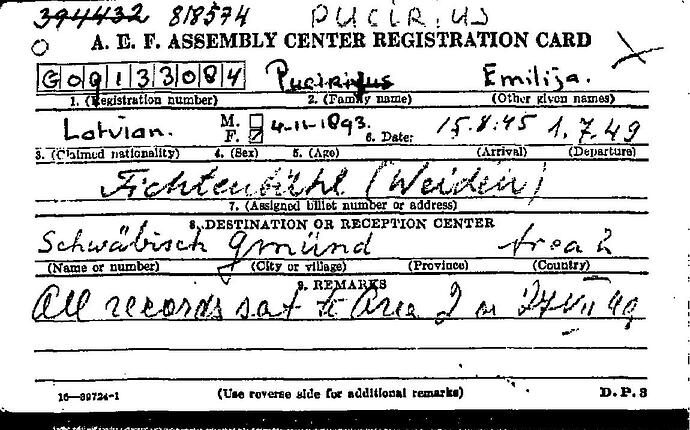 394432 818574 PUCIR.US
A. E. F. ASSEMBLY CENTER REGISTRATION CARD
G09133084 Emilija.
1. (Registration number) 2. (Family name) (Other given names)
Latvian. M. F. 4-11-1893. 6. Date: 15.8.45 1.7.49
3. (Claimed nationality) 4. (Sex) 5. (Age) (Arrival) (Departure)
Fichtenbühl (Weiden)
7. (Assigned billet number or address)
8. DESTINATION OR RECEPTION CENTER
Schwäbisch Gmünd Area 2
(Name or number) (City or village) (Province) (Country)
9. REMARKS
All records sat to Area 2 on 27 VII 49
16—39724-1 (Use reverse side for additional remarks) D. P. 3